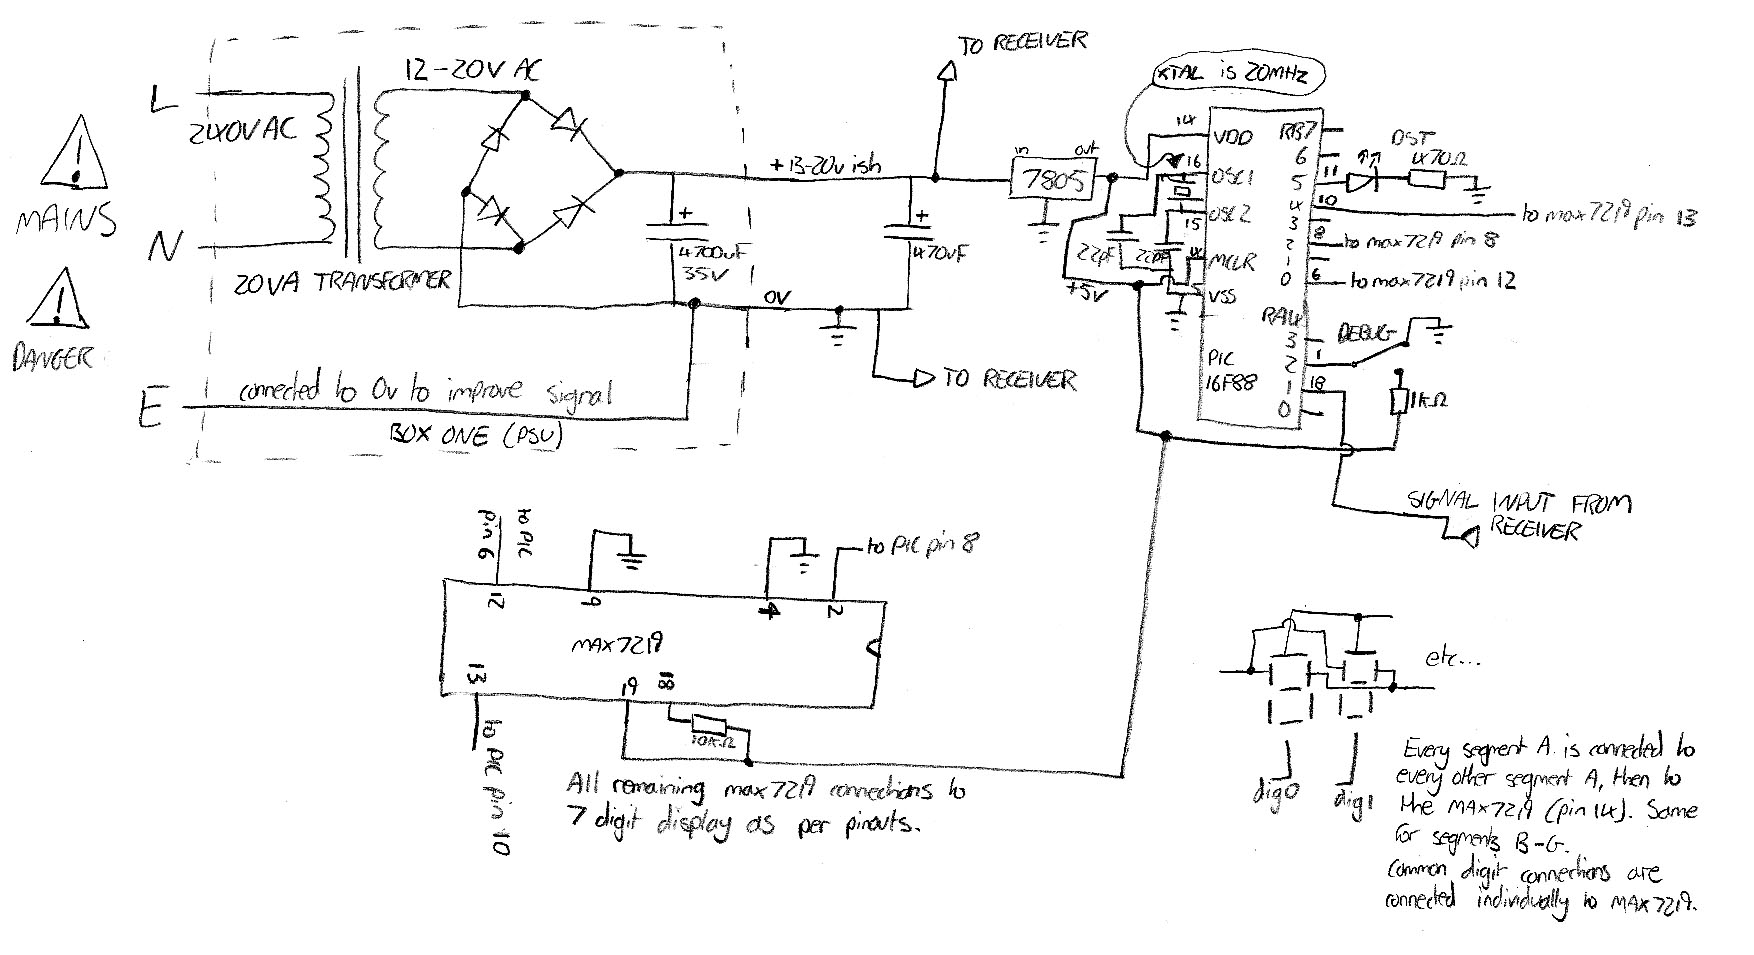 TO RECEIVER
12-20V AC
XTAL is 20MHZ
L
240V AC
MAINS
N
20VA TRANSFORMER
DANGER
E
connected to 0v to improve signal
BOX ONE (PSU)
+13-20v ish
+
4700uF
35V
+
470uF
0V
TO RECEIVER
in
out
7805
+5V
22pF
22pF
14
VDD
16
OSC1
OSC2
15
4
MCLR
5
VSS
PIC
16F88
RB7
6
5
4
3
2
1
0
RA4
3
2
1
0
11
10
8
6
1
18
DST
470Ω
to max7219 pin 13
to max7219 pin 8
to max7219 pin 12
DEBUG
1KΩ
SIGNAL INPUT FROM
RECEIVER
to PIC
pin 6
to PIC pin 8
12
9
4
2
MAX7219
13
19
18
10KΩ
to PIC pin 10
All remaining max7219 connections to
7 digit display as per pinouts.
etc...
dig0
dig1
Every segment A is connected to
every other segment A, then to
the MAX7219 (pin 14). Same
for segments B-G.
Common digit connections are
connected individually to MAX7219.